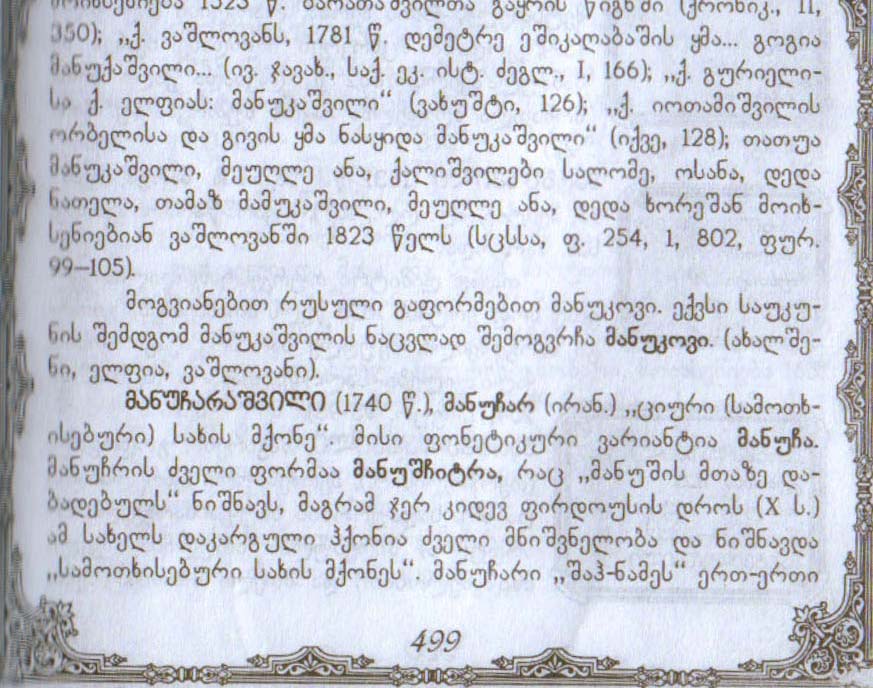 მოიხსენიება 1523 წ. ბარათაშვილთა გაყრის წიგნში (ქრონიკ., II,
350); „ქ. ვაშლოვანს, 1781 წ. დემეტრე ეშიკაღაბაშის ყმა... გოგია
მანუქაშვილი... (ივ. ჯავახ., საქ. ეკ. ისტ. ძეგლ., I, 166); „ქ. გურიელი-
სა ქ. ელფიას: მანუკაშვილი“ (ვახუშტი, 126); „ქ. იოთამიშვილის
ორბელისა და გივის ყმა ნასყიდა მანუკაშვილი“ (იქვე, 128); თათუა
მანუკაშვილი, მეუღლე ანა, ქალიშვილები სალომე, ოსანა, დედა
ნათელა, თამაზ მამუკაშვილი, მეუღლე ანა, დედა ხორეშან მოიხ-
სენიებიან ვაშლოვანში 1823 წელს (სცსსა, ფ. 254, 1, 802, ფურ.
99–105).
მოგვიანებით რუსული გაფორმებით მანუკოვი. ექვსი საუკუ-
ნის შემდგომ მანუკაშვილის ნაცვლად შემოგვრჩა მანუკოვი. (ახალშე-
ნი, ელფია, ვაშლოვანი).
მანუჩარაშვილი (1740 წ.), მანუჩარ (ირან.) „ციური (სამოთხ-
ისებური) სახის მქონე“. მისი ფონეტიკური ვარიანტია მანუჩა.
მანუჩრის ძველი ფორმაა მანუშჩიტრა, რაც „მანუშის მთაზე და-
ბადებულს“ ნიშნავს, მაგრამ ჯერ კიდევ ფირდოუსის დროს (X ს.)
ამ სახელს დაკარგული ჰქონია ძველი მნიშვნელობა და ნიშნავდა
„სამოთხისებური სახის მქონეს“. მანუჩარი „შაჰ-ნამეს“ ერთ-ერთი
499